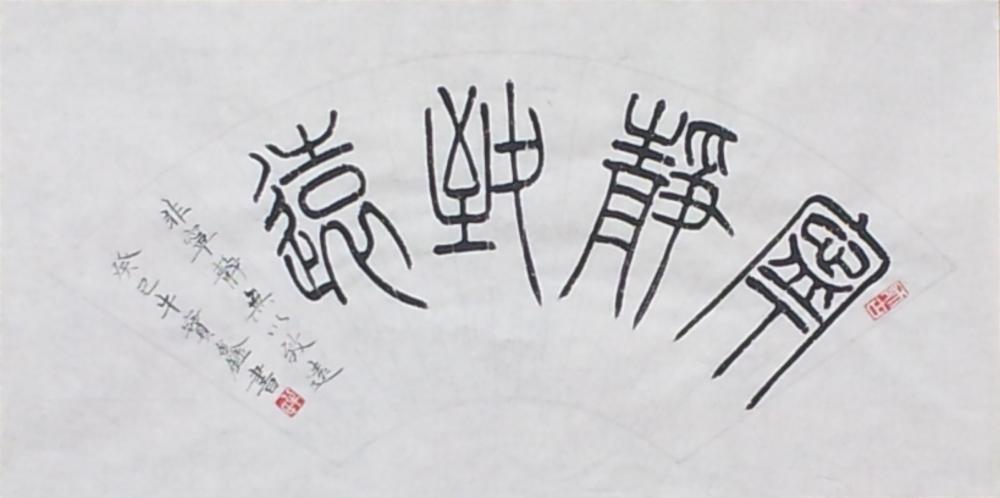 寧靜致遠
非寧靜無以致遠
癸巳牛寶鑫書